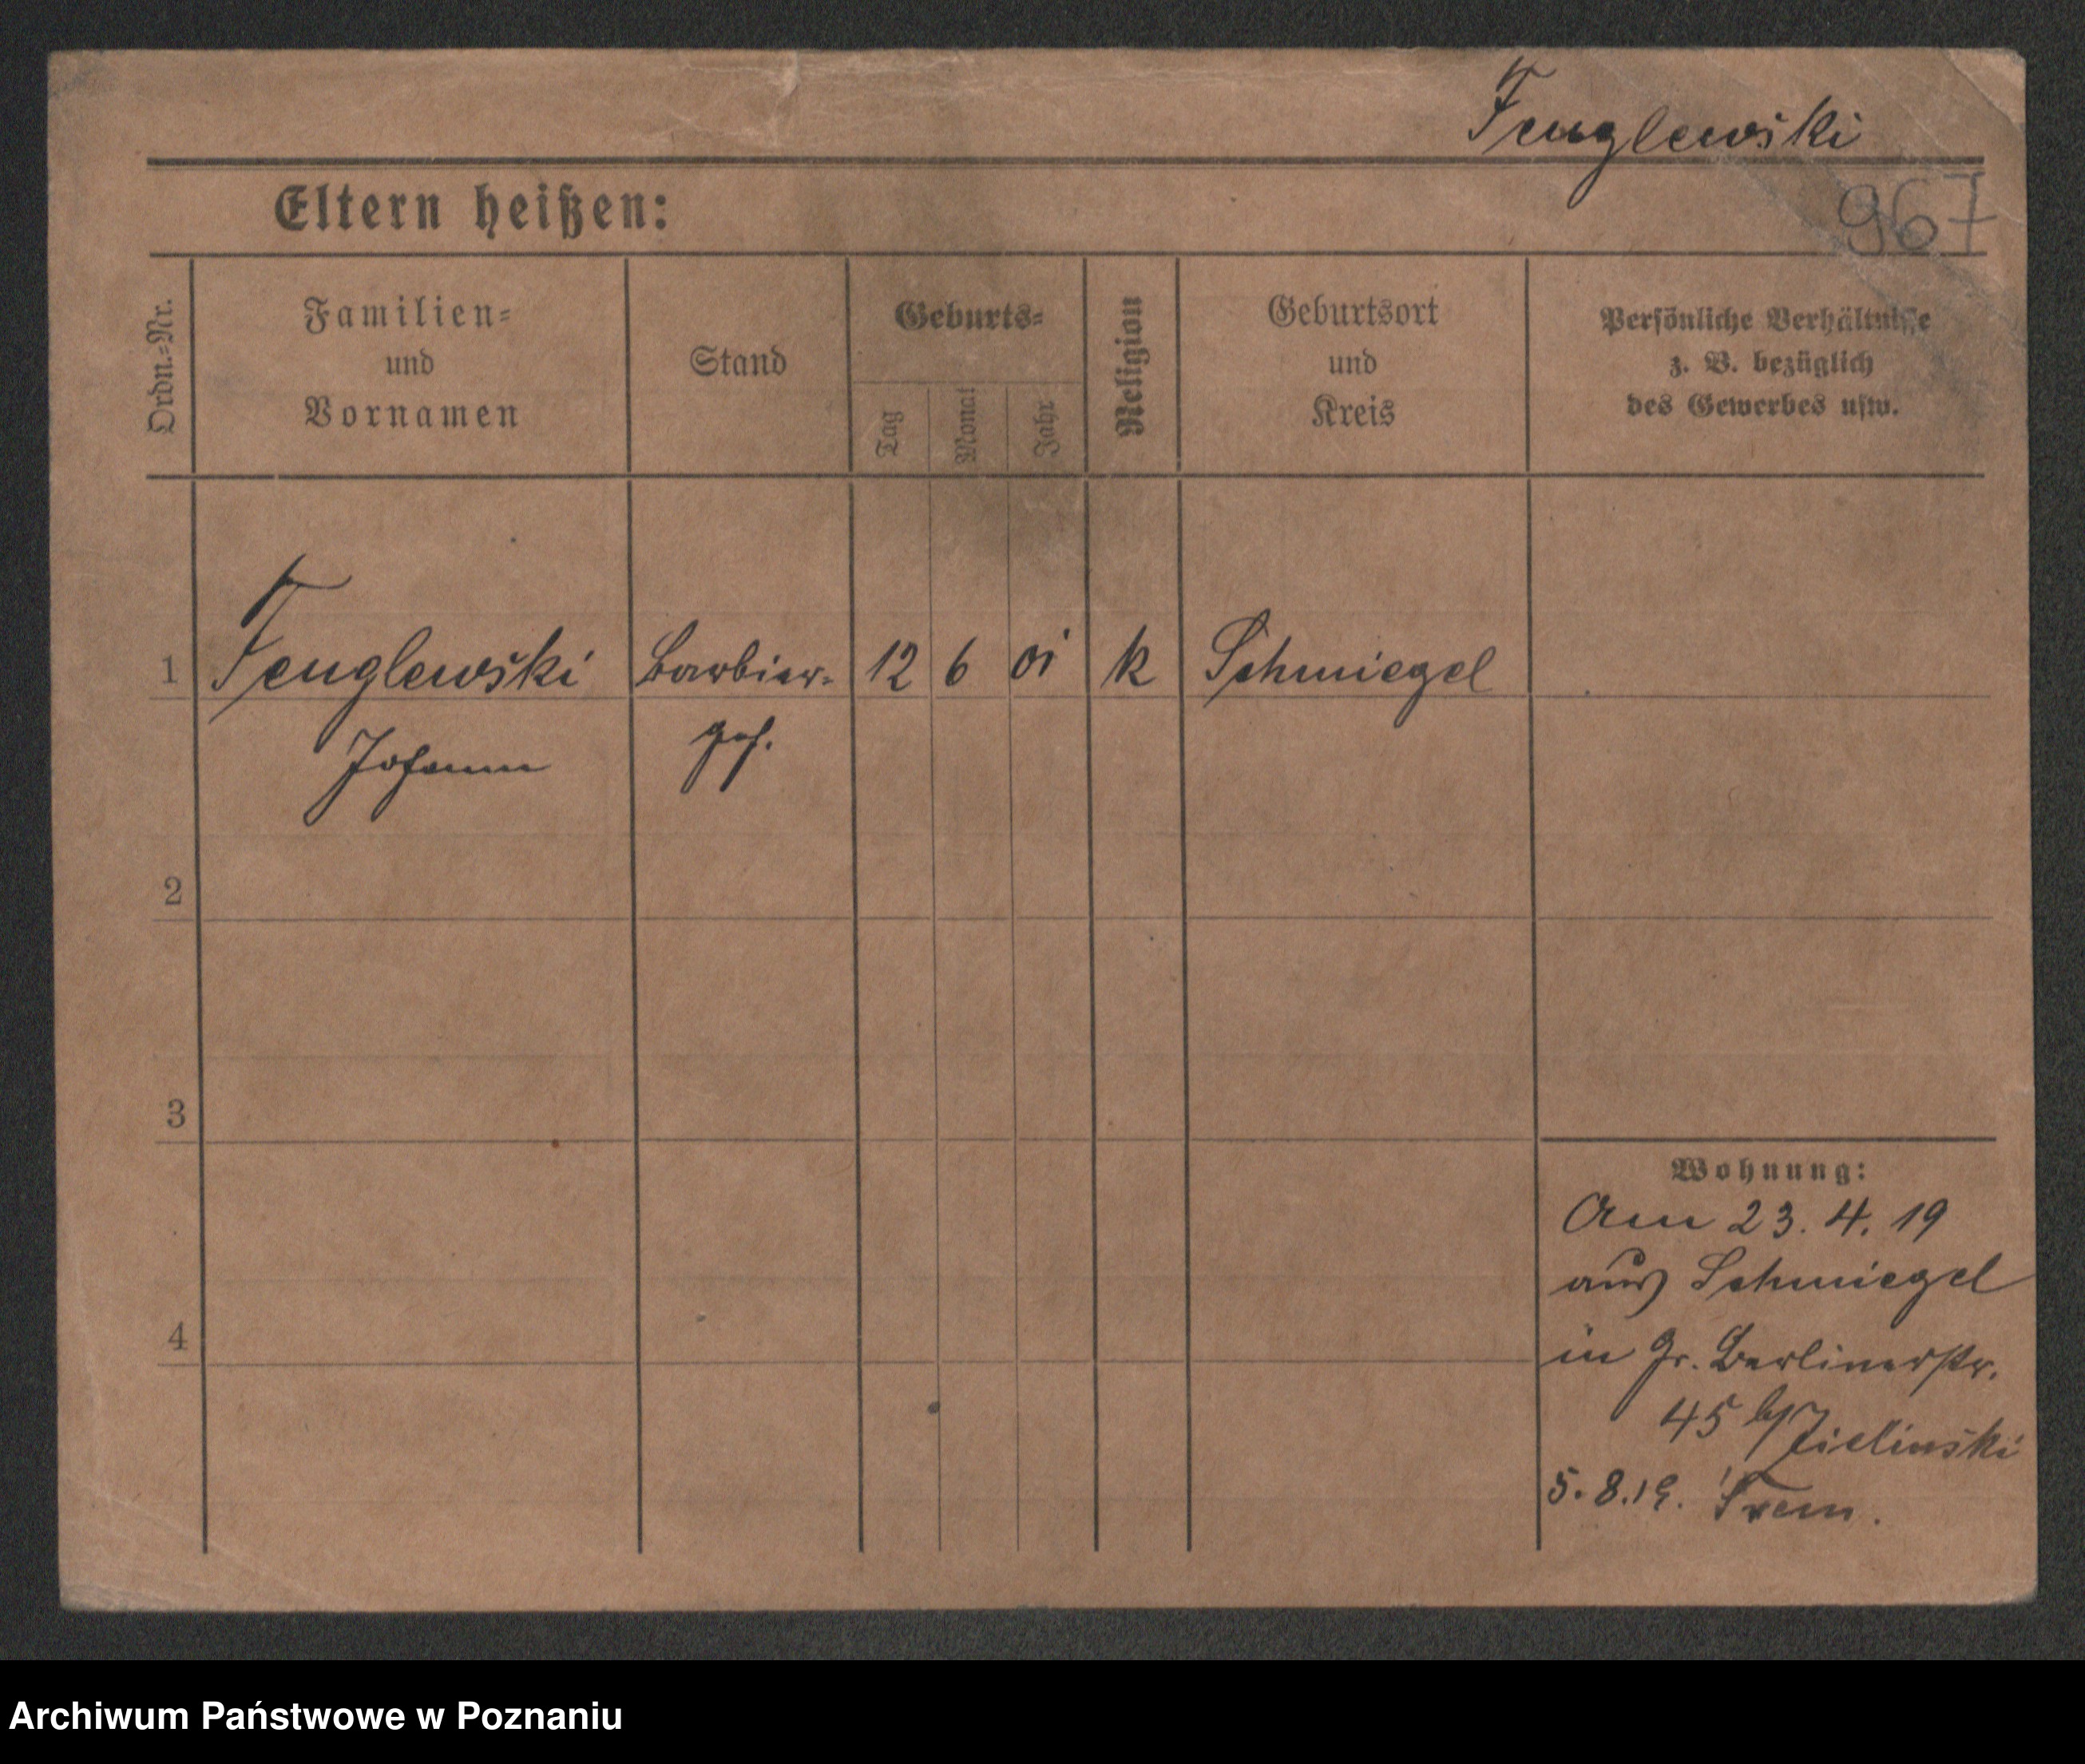 Fenglewski
Eltern heißen:
967
Ordn.=Nr.
Familien=
und
Vornamen
Stand
Geburts=
Tag
Monat
Jahr
Religion
Geburtsort
und
Kreis
Persönliche Verhältnisse
z. B. bezüglich
des Gewerbes usw.
1 Fenglewski Barbier= 12 6 01 k Schmiegel
Johann geh.
2
3
4
Wohnung:
Am 23. 4. 19
aus Schmiegel
in Gr. Berlinerstr.
45 b/Zielinski
5. 8. 19. Srem.
Archiwum Państwowe w Poznaniu